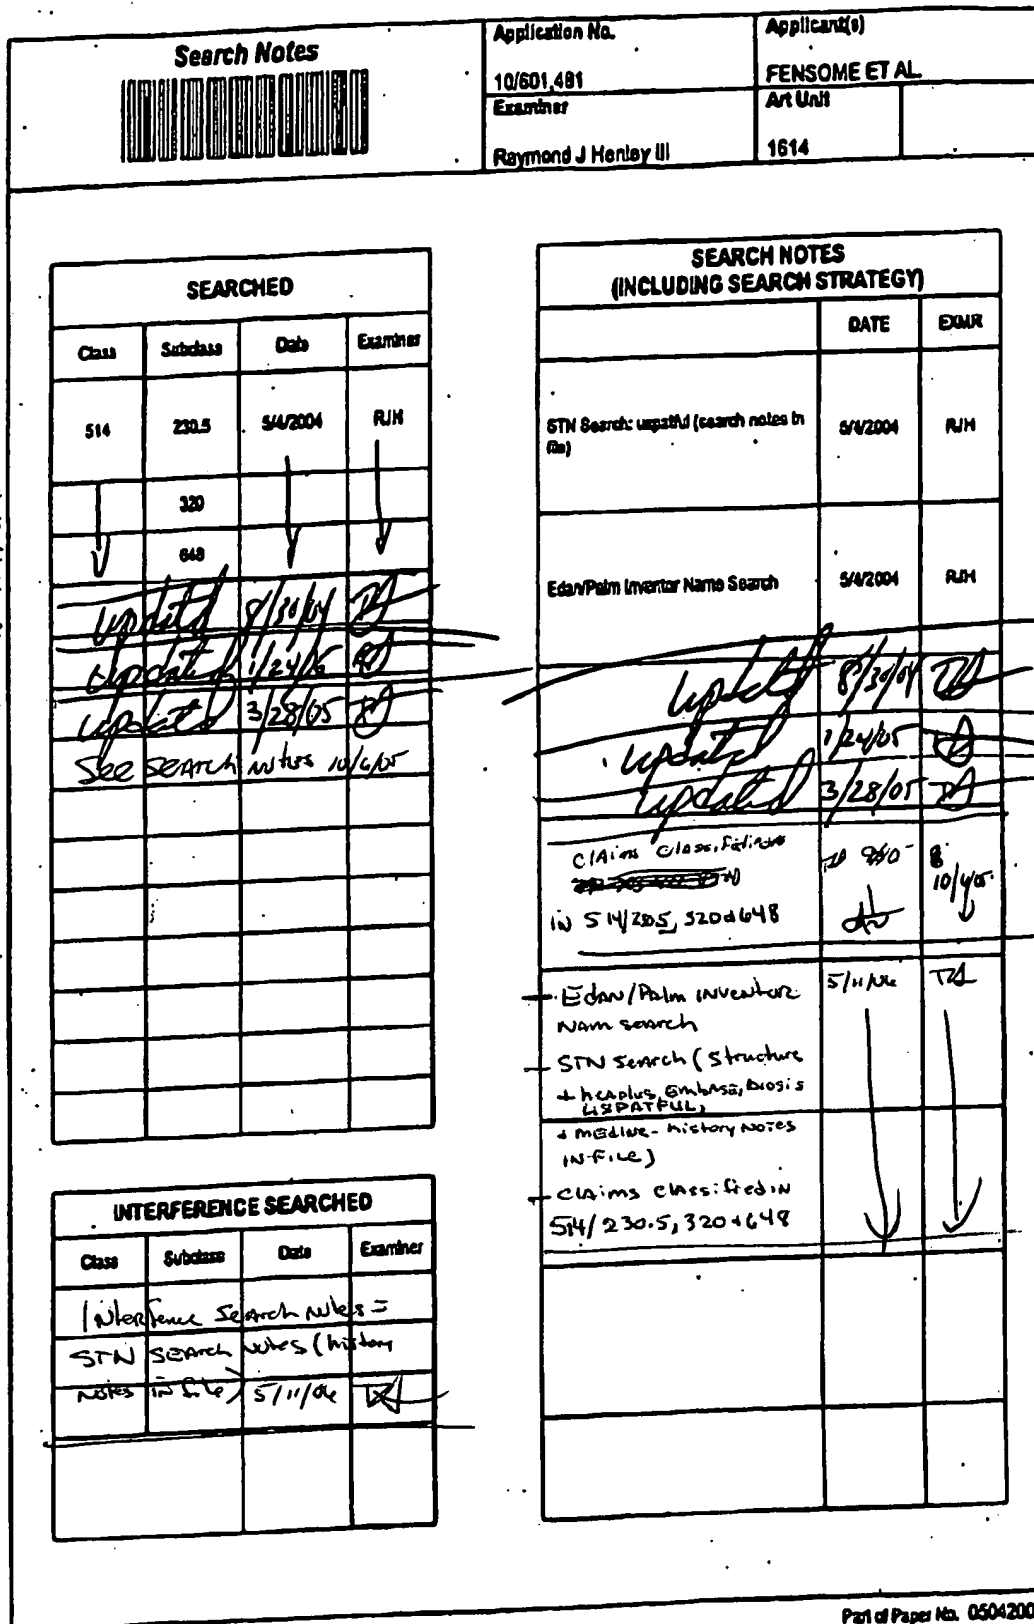 Search Notes
Application No.
10/601,481
Applicant(s)
FENSOME ET AL.
Examiner
Raymond J Henley III
Art Unit
1614
SEARCHED
Class Subclass Date Examiner
514 230.5 5/4/2004 RJH
320
648
updated 8/30/04
updated 1/24/05
updated 3/28/05
See SEARCH Notes 10/6/05
INTERFERENCE SEARCHED
Class Subclass Date Examiner
Interference Search notes =
STN SEARCH Notes (history
notes in file) 5/11/06
SEARCH NOTES
(INCLUDING SEARCH STRATEGY)
DATE EXMR
STN Search: uspatful (search notes in
file) 5/4/2004 RJH
Edan/Palm Inventor Name Search 5/4/2004 RJH
updated 8/30/04
updated 1/24/05
updated 3/28/05
Claims Classified
in 514/230.5, 320+648
- Edan/Palm inventor 5/11/06
Nam search
- STN Search (Structure
+ hcaplus, Embase, Biosis
USPATFUL,
+ medline - history notes
IN FILE)
- Claims classified in
514/230.5, 320+648
Part of Paper No. 0504200